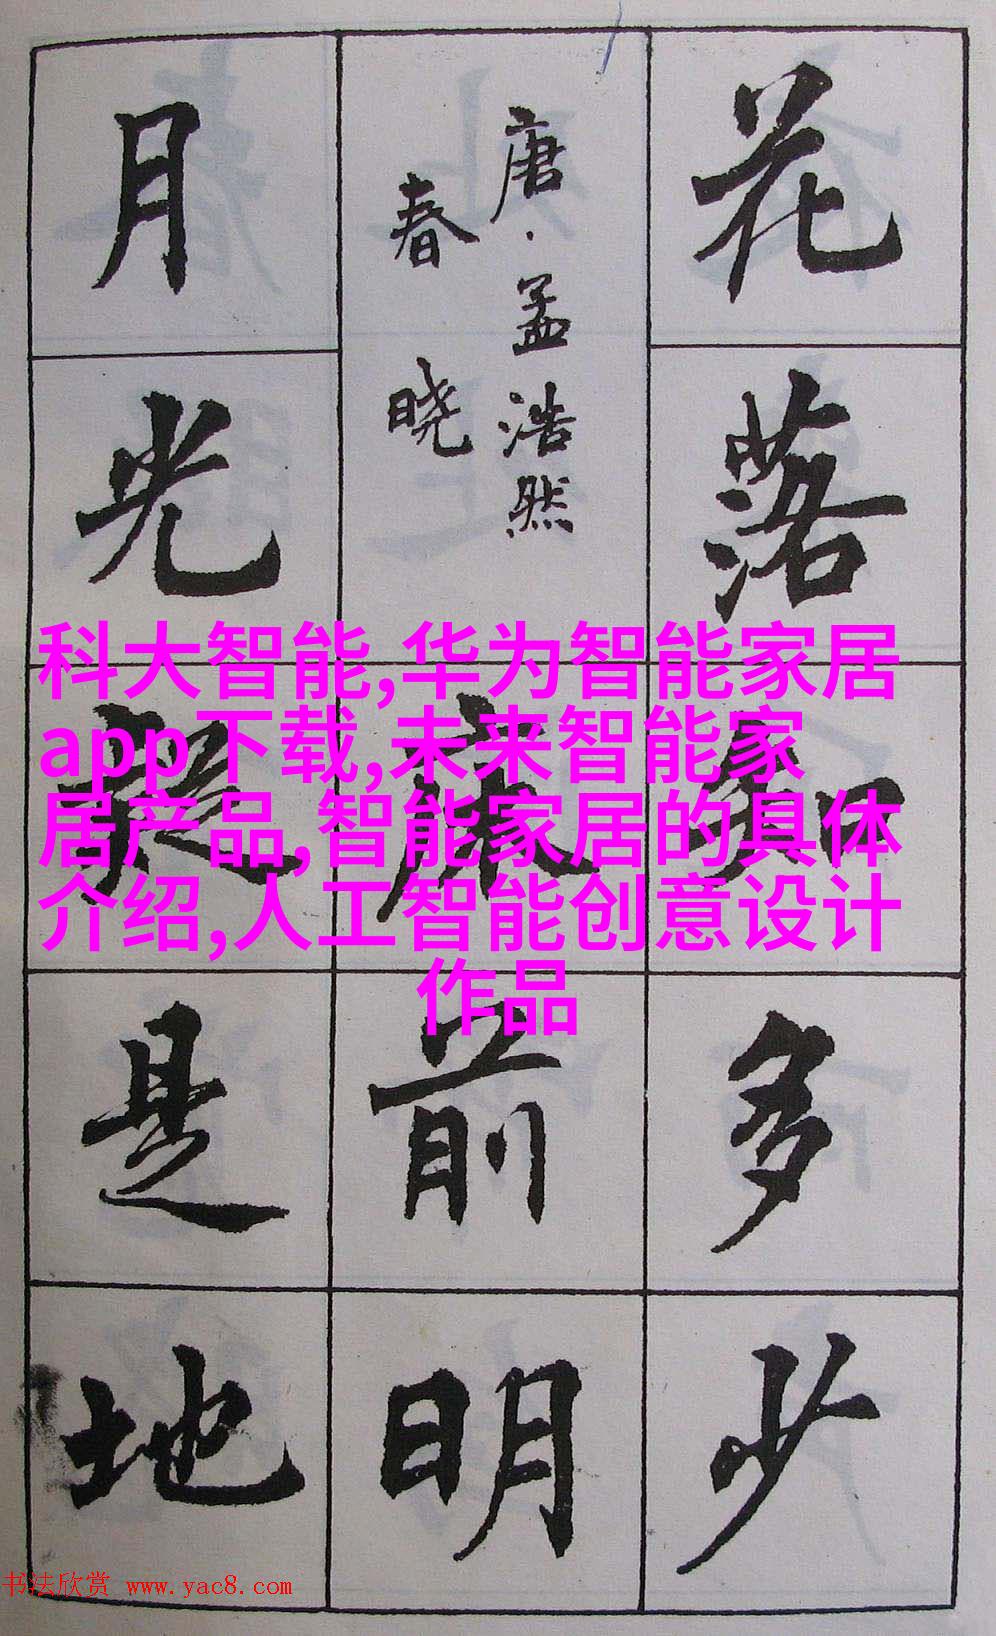 花落知多少
唐·孟浩然
春晓
床前明
月光疑是地
科大智能,华为智能家居
app下载,未来智能家
居产品,智能家居的具体
介绍,人工智能创意设计
作品
书法欣赏 www.yac8.com